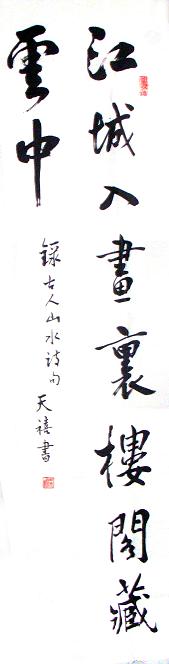 江城入畫裏樓閣藏
雲中
錄古人山水詩句
天禧書